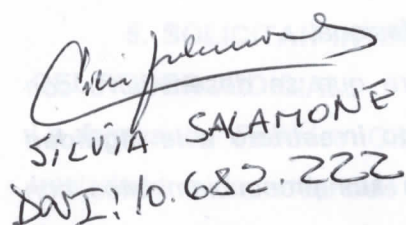 SILVIA SALAMONE
DNI: 10.682.222